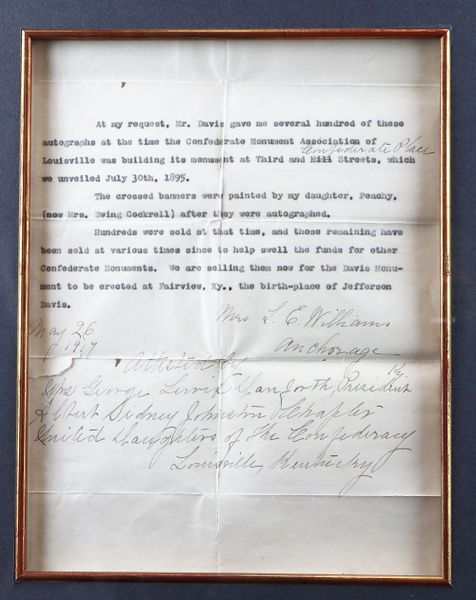 At my request, Mr. Davis gave me several hundred of these
autographs at the time the Confederate Monument Association of
Confederate Place
Louisville was building its monument at Third and Hill Streets, which
we unveiled July 30th, 1895.
The crossed banners were painted by my daughter, Peachy,
(now Mrs. Ewing Cockrell) after they were autographed.
Hundreds were sold at that time, and those remaining have
been sold at various times since to help swell the funds for other
Confederate Monuments. We are selling them now for the Davis Monu-
ment to be erected at Fairview, Ky., the birth-place of Jefferson
Davis.
Mrs L. E. Williams
May 26
1917
Anchorage
Ky.
Attested by
Mrs George Lewis Danforth, President
Albert Sidney Johnston Chapter
United Daughters of the Confederacy
Louisville, Kentucky